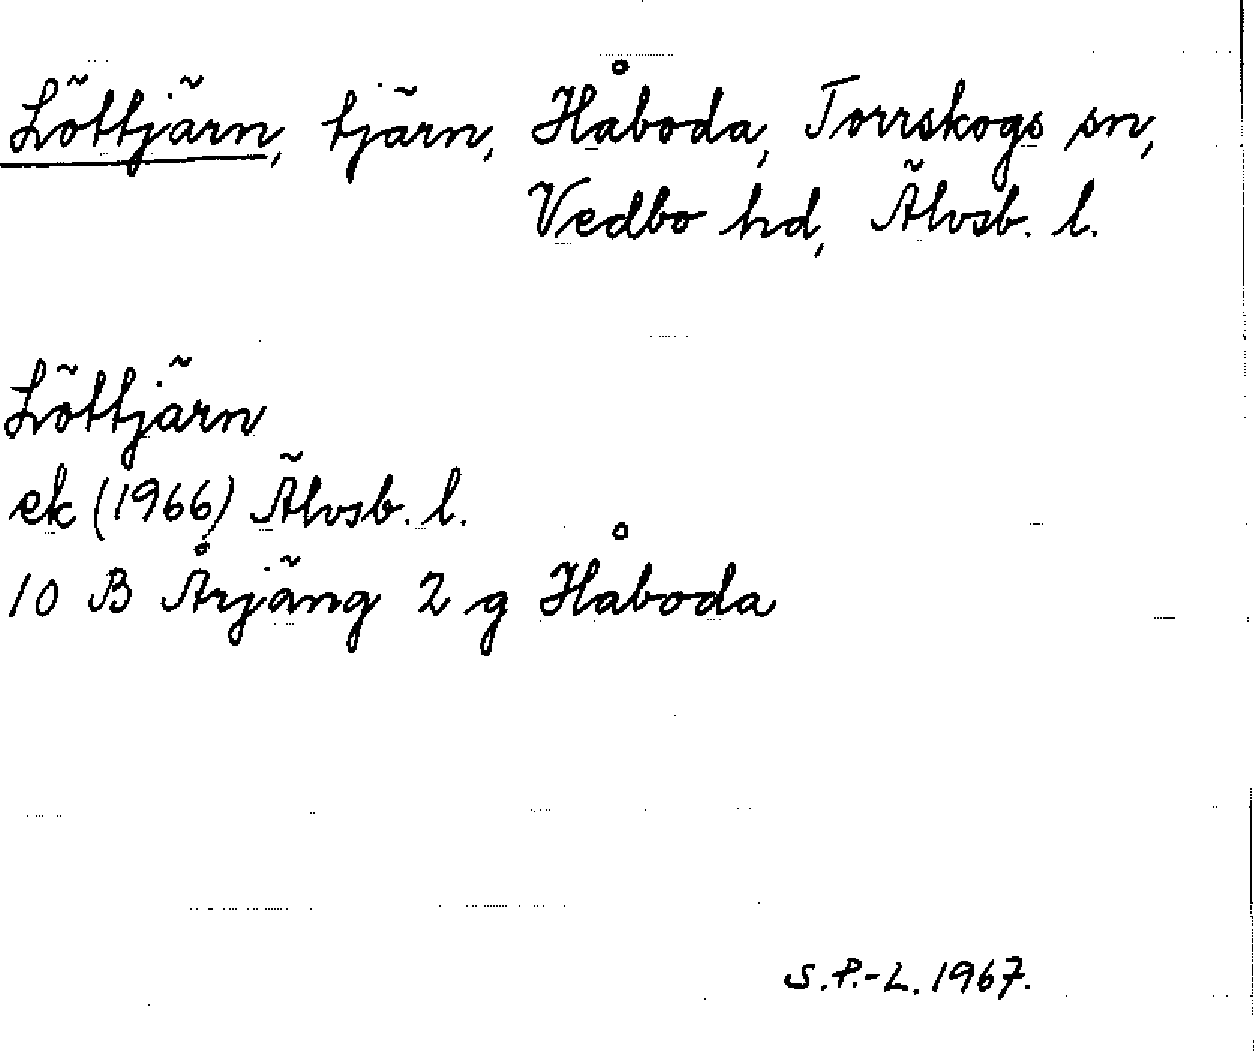 Löttjärn, tjärn, Håboda, Torrskogs sn,
Vedbo hd, Älvsb. l.
Löttjärn
ek (1966) Älvsb. l.
10 B Årjäng 2 g Håboda
S.P.-L. 1967.